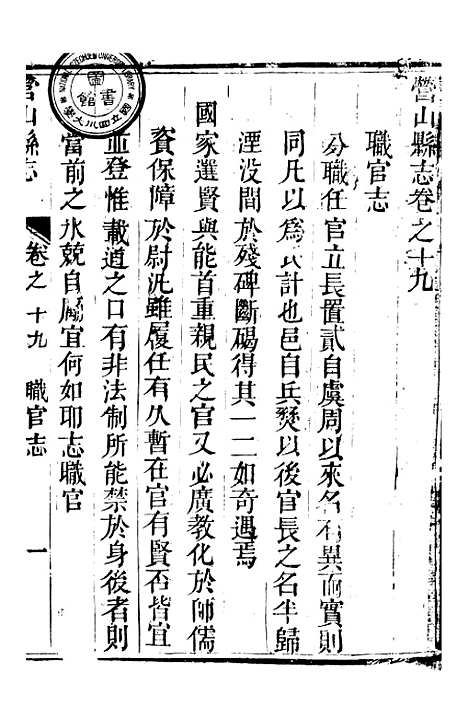 營山縣志卷之十九
職官志
分職任官立長置貳自虞周以來名有異而實則
同凡以爲民計也邑自兵燹以後官長之名半歸
湮没間於殘碑斷碣得其一二如奇遇焉
國家選賢與能首重親民之官又必廣教化於師儒
資保障於尉汛雖履任有久暫在官有賢否皆宜
並登惟載道之口有非法制所能禁於身後者則
當前之氷兢自勵宜何如耶志職官
營山縣志
卷之十九 職官志 一